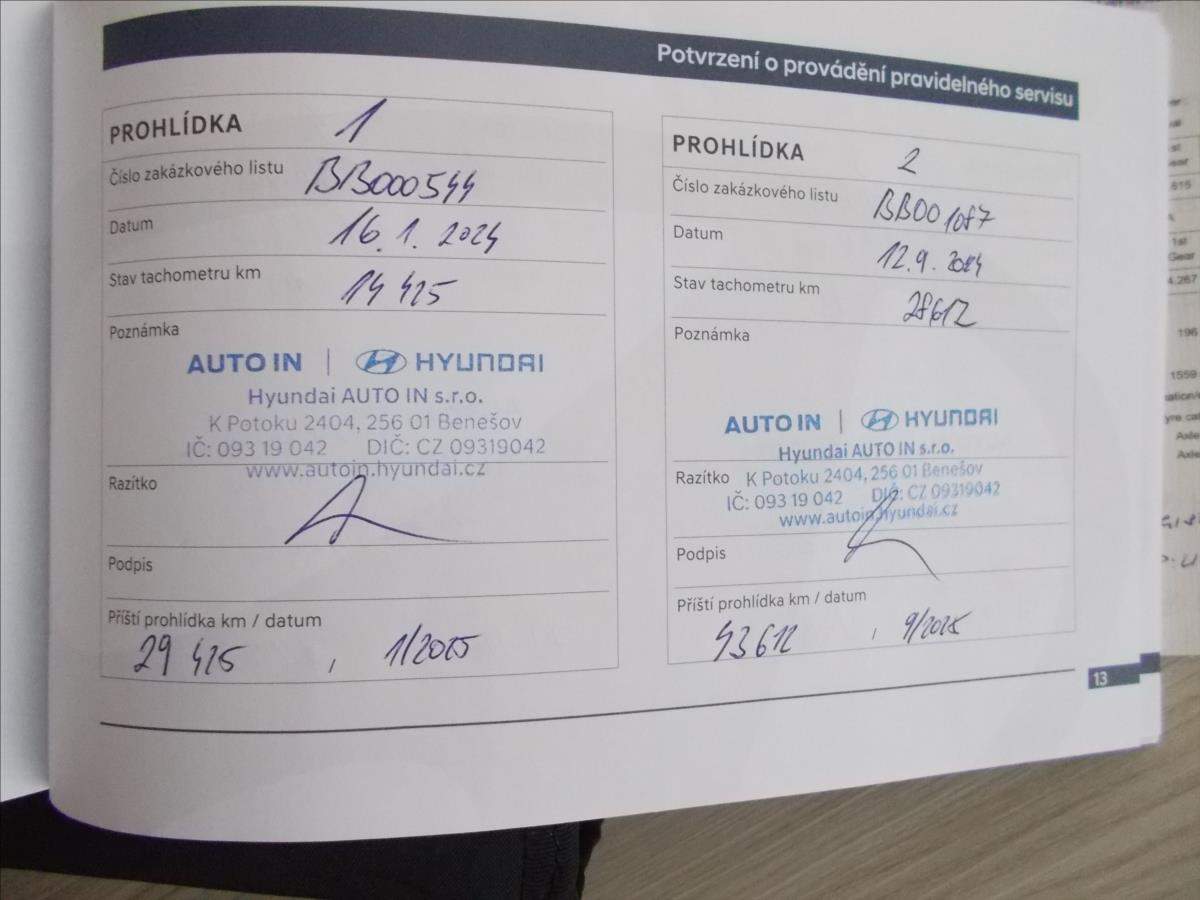 Potvrzení o provádění pravidelného servisu
PROHLÍDKA 1
Číslo zakázkového listu BB000544
Datum 16.1.2024
Stav tachometru km 14 425
Poznámka
AUTO IN | HYUNDAI
Hyundai AUTO IN s.r.o.
K Potoku 2404, 256 01 Benešov
IČ: 093 19 042 DIČ: CZ 09319042
www.autoin.hyundai.cz
Razítko
Podpis
Příští prohlídka km / datum
29 425 , 1/2025
PROHLÍDKA 2
Číslo zakázkového listu BB001087
Datum 12.9.2024
Stav tachometru km 28612
Poznámka
AUTO IN | HYUNDAI
Hyundai AUTO IN s.r.o.
Razítko K Potoku 2404, 256 01 Benešov
IČ: 093 19 042 DIČ: CZ 09319042
www.autoin.hyundai.cz
Podpis
Příští prohlídka km / datum
43612 , 9/2025
13
1st
Gear
4.267
196
1559